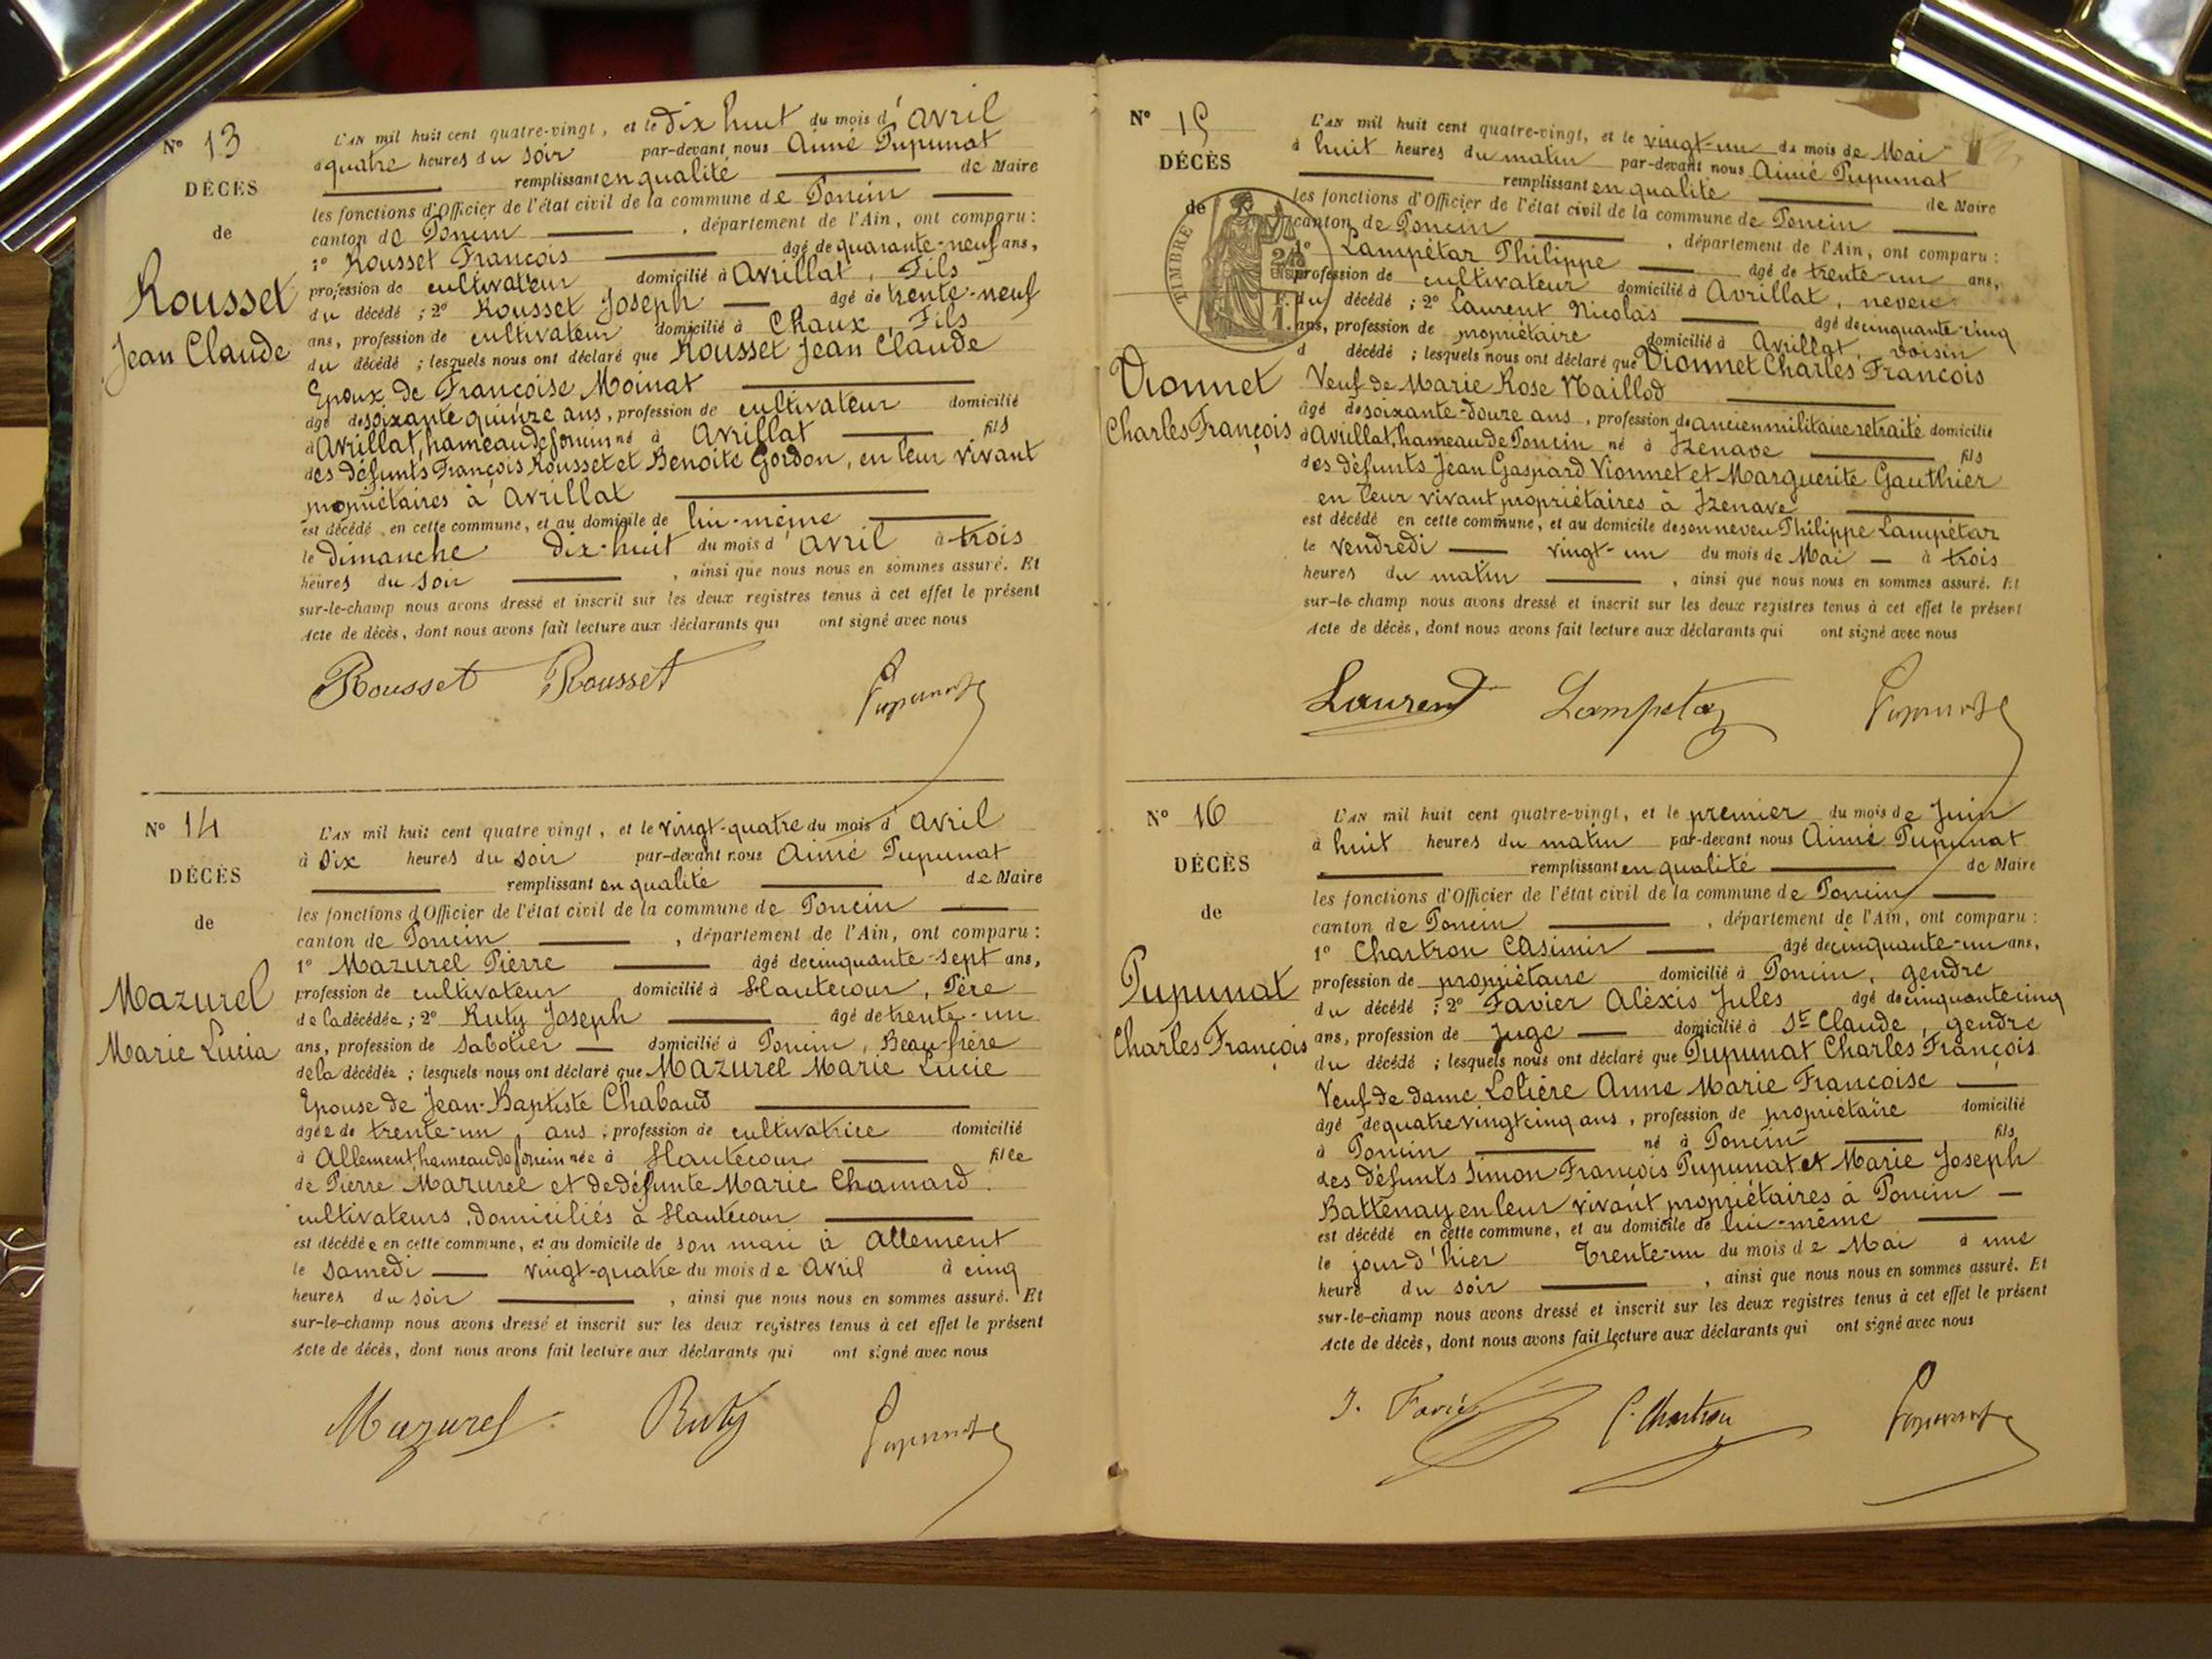 N° 13
DÉCÈS
de
Rousset
Jean Claude
L'AN mil huit cent quatre-vingt, et le Dix huit du mois d'avril
à quatre heures du soir par-devant nous Aimé Pupunat
remplissant en qualité de Maire
les fonctions d'Officier de l'état civil de la commune de Poncin
canton de Poncin, département de l'Ain, ont comparu :
1° Rousset François âgé de quarante-neuf ans,
profession de cultivateur domicilié à Avrillat, Fils
du décédé ; 2° Rousset Joseph âgé de trente-neuf
ans, profession de cultivateur domicilié à Chaux, Fils
du décédé ; lesquels nous ont déclaré que Rousset Jean Claude
Epoux de Françoise Moinat
âgé de soixante quinze ans, profession de cultivateur domicilié
à Avrillat, hameau de Poncin né à Avrillat fils
des défunts François Rousset et Benoite Gordon, en leur vivant
propriétaires à Avrillat
est décédé en cette commune, et au domicile de lui-même
le Dimanche Dix-huit du mois d'avril à trois
heures du soir, ainsi que nous nous en sommes assuré. Et
sur-le-champ nous avons dressé et inscrit sur les deux registres tenus à cet effet le présent
Acte de décès, dont nous avons fait lecture aux déclarants qui ont signé avec nous
Rousset Rousset Pupunat
N° 14
DÉCÈS
de
Mazurel
Marie Lucia
L'AN mil huit cent quatre vingt, et le vingt-quatre du mois d'avril
à six heures du soir par-devant nous Aimé Pupunat
remplissant en qualité de Maire
les fonctions d'Officier de l'état civil de la commune de Poncin
canton de Poncin, département de l'Ain, ont comparu :
1° Mazurel Pierre âgé de cinquante-sept ans,
profession de cultivateur domicilié à Hautecour, Père
de la décédée ; 2° Ruty Joseph âgé de trente-un
ans, profession de sabotier domicilié à Poncin, Beau-frère
de la décédée ; lesquels nous ont déclaré que Mazurel Marie Lucie
Epouse de Jean-Baptiste Chabaud
âgée de trente-un ans, profession de cultivatrice domicilié
à Allement hameau de Poncin née à Hautecour fille
de Pierre Mazurel et de défunte Marie Chamard.
cultivateurs, domiciliés à Hautecour
est décédée en cette commune, et au domicile de son mari à Allement
le samedi vingt-quatre du mois de avril à cinq
heures du soir, ainsi que nous nous en sommes assuré. Et
sur-le-champ nous avons dressé et inscrit sur les deux registres tenus à cet effet le présent
Acte de décès, dont nous avons fait lecture aux déclarants qui ont signé avec nous
Mazurel Ruty Pupunat
N° 15
DÉCÈS
de
TIMBRE
Vionnet
Charles François
L'AN mil huit cent quatre-vingt, et le vingt-un du mois de Mai
à huit heures du matin par-devant nous Aimé Pupunat
remplissant en qualité de Maire
les fonctions d'Officier de l'état civil de la commune de Poncin
canton de Poncin, département de l'Ain, ont comparu :
1° Lampétaz Philippe âgé de trente-un ans,
profession de cultivateur domicilié à Avrillat, neveu
du décédé ; 2° Laurent Nicolas âgé de cinquante-cinq
ans, profession de propriétaire domicilié à Avrillat, voisin
d décédé ; lesquels nous ont déclaré que Vionnet Charles François
Veuf de Marie Rose Maillod
âgé de soixante-douze ans, profession de ancien militaire retraité domicilié
à Avrillat, hameau de Poncin né à Izenave fils
des défunts Jean Gaspard Vionnet et Marguerite Gauthier
en leur vivant propriétaires à Izenave
est décédé en cette commune, et au domicile de son neveu Philippe Lampétaz
le vendredi vingt-un du mois de Mai à trois
heures du matin, ainsi que nous nous en sommes assuré. Et
sur-le-champ nous avons dressé et inscrit sur les deux registres tenus à cet effet le présent
Acte de décès, dont nous avons fait lecture aux déclarants qui ont signé avec nous
Laurent Lampetaz Pupunat
N° 16
DÉCÈS
de
Pupunat
Charles François
L'AN mil huit cent quatre-vingt, et le premier du mois de Juin
à huit heures du matin par-devant nous Aimé Pupunat
remplissant en qualité de Maire
les fonctions d'Officier de l'état civil de la commune de Poncin
canton de Poncin, département de l'Ain, ont comparu :
1° Chartron Casimir âgé de cinquante-un ans,
profession de propriétaire domicilié à Poncin, gendre
du décédé ; 2° Favier Aléxis Jules âgé de cinquante cinq
ans, profession de Juge domicilié à St Claude, gendre
du décédé ; lesquels nous ont déclaré que Pupunat Charles François
Veuf de dame Lotière Anne Marie Françoise
âgé de quatre vingt cinq ans, profession de propriétaire domicilié
à Poncin né à Poncin fils
des défunts Simon François Pupunat et Marie Joseph
Battenay en leur vivant propriétaires à Poncin
est décédé en cette commune, et au domicile de lui-même
le jour d'hier Trente-un du mois de Mai à une
heure du soir, ainsi que nous nous en sommes assuré. Et
sur-le-champ nous avons dressé et inscrit sur les deux registres tenus à cet effet le présent
Acte de décès, dont nous avons fait lecture aux déclarants qui ont signé avec nous
J. Favier C. Chartron Pupunat